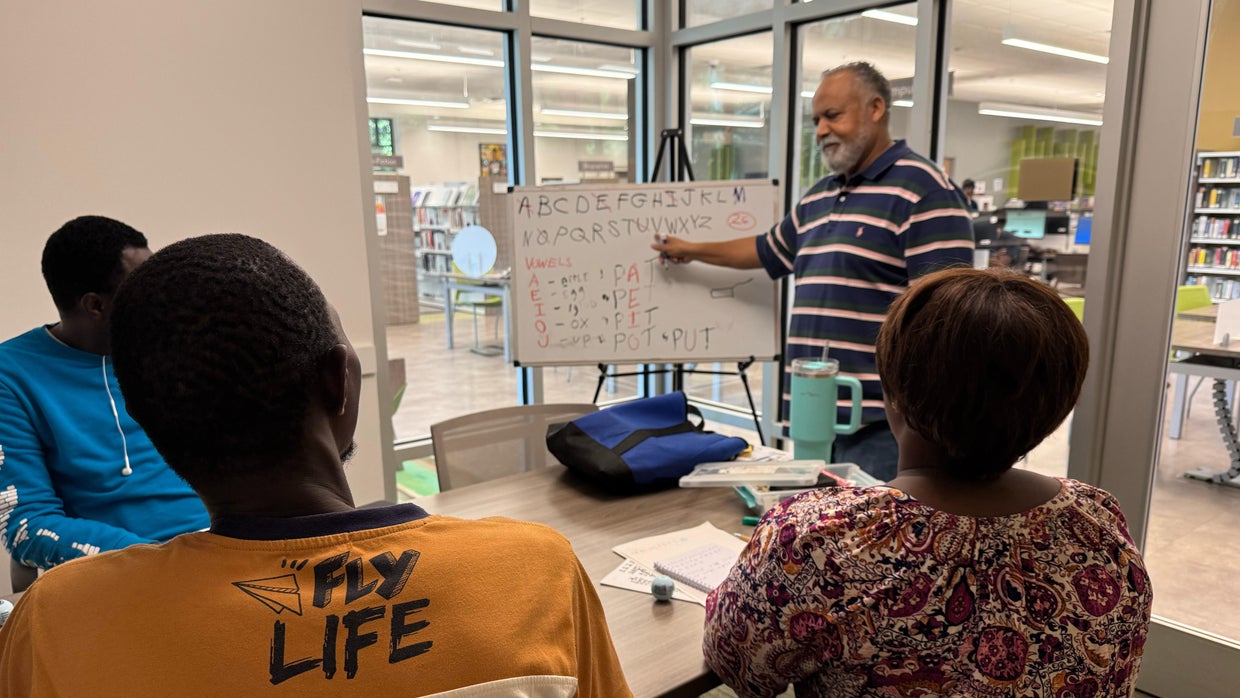 ABCDEFGHIJKLM
NOPQRSTUVWXYZ
26
VOWELS
A - APPLE PAT
E - EGG PET
I PIT
O - OX POT
U - UP PUT
FLY
LIFE